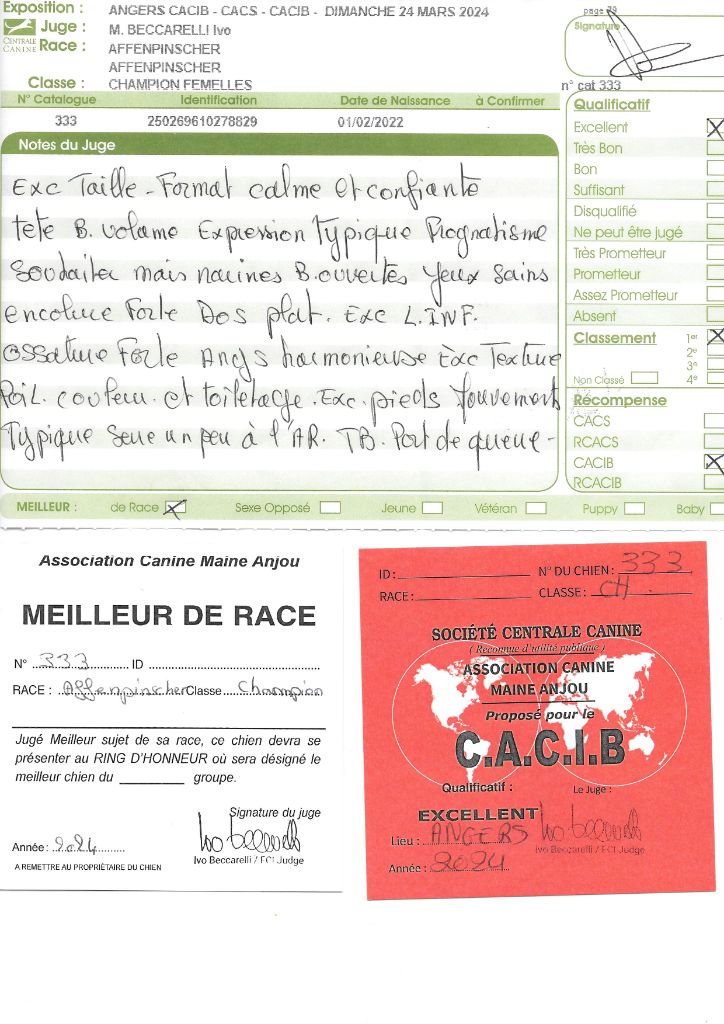 Exposition : ANGERS CACIB - CACS - CACIB - DIMANCHE 24 MARS 2024
page 79
Juge : M. BECCARELLI Ivo
Signature
CENTRALE CANINE
Race : AFFENPINSCHER
AFFENPINSCHER
Classe : CHAMPION FEMELLES
n° cat 333
N° Catalogue Identification Date de Naissance à Confirmer
333 250269610278829 01/02/2022
Notes du Juge
Exc Taille - Format calme et confiante
tete B. volume Expression Typique Prognatisme
Souhaiter mais narines B. ouvertes yeux sains
encolure Forte Dos plat. Exc L. INF.
ossature Forte Angs harmonieuse Exc Texture
Poil. couleur et toilettage. Exc. pieds Mouvement
Typique Serre un peu à l'AR. TB. Port de queue -
Qualificatif
Excellent X
Très Bon
Bon
Suffisant
Disqualifié
Ne peut être jugé
Très Prometteur
Prometteur
Assez Prometteur
Absent
Classement 1er X
2e
3e
Non Classé 4e
Récompense
CACS
RCACS
CACIB X
RCACIB
MEILLEUR : de Race X Sexe Opposé Jeune Vétéran Puppy Baby
Association Canine Maine Anjou
MEILLEUR DE RACE
N° 333 ID
RACE : Affenpinscher Classe Champion
Jugé Meilleur sujet de sa race, ce chien devra se
présenter au RING D'HONNEUR où sera désigné le
meilleur chien du groupe.
Signature du juge
Ivo Beccarelli
Année : 2024
Ivo Beccarelli / FCI Judge
A REMETTRE AU PROPRIÉTAIRE DU CHIEN
ID : N° DU CHIEN : 333
RACE : CLASSE : CH
SOCIÉTÉ CENTRALE CANINE
( Reconnue d'utilité publique )
ASSOCIATION CANINE
MAINE ANJOU
Proposé pour le
C.A.C.I.B
Qualificatif : Le Juge :
EXCELLENT
Ivo Beccarelli
Lieu : ANGERS
Ivo Beccarelli / FCI Judge
Année : 2024